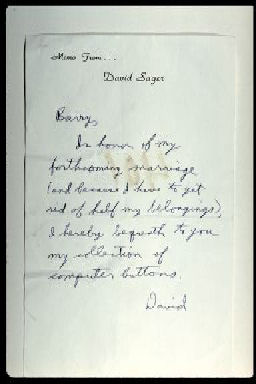 Memo From...
David Sager
Barry,
In honor of my
forthcoming marriage
(and because I have to get
rid of half my belongings),
I hereby beqveth to you
my collection of
computer buttons.
David